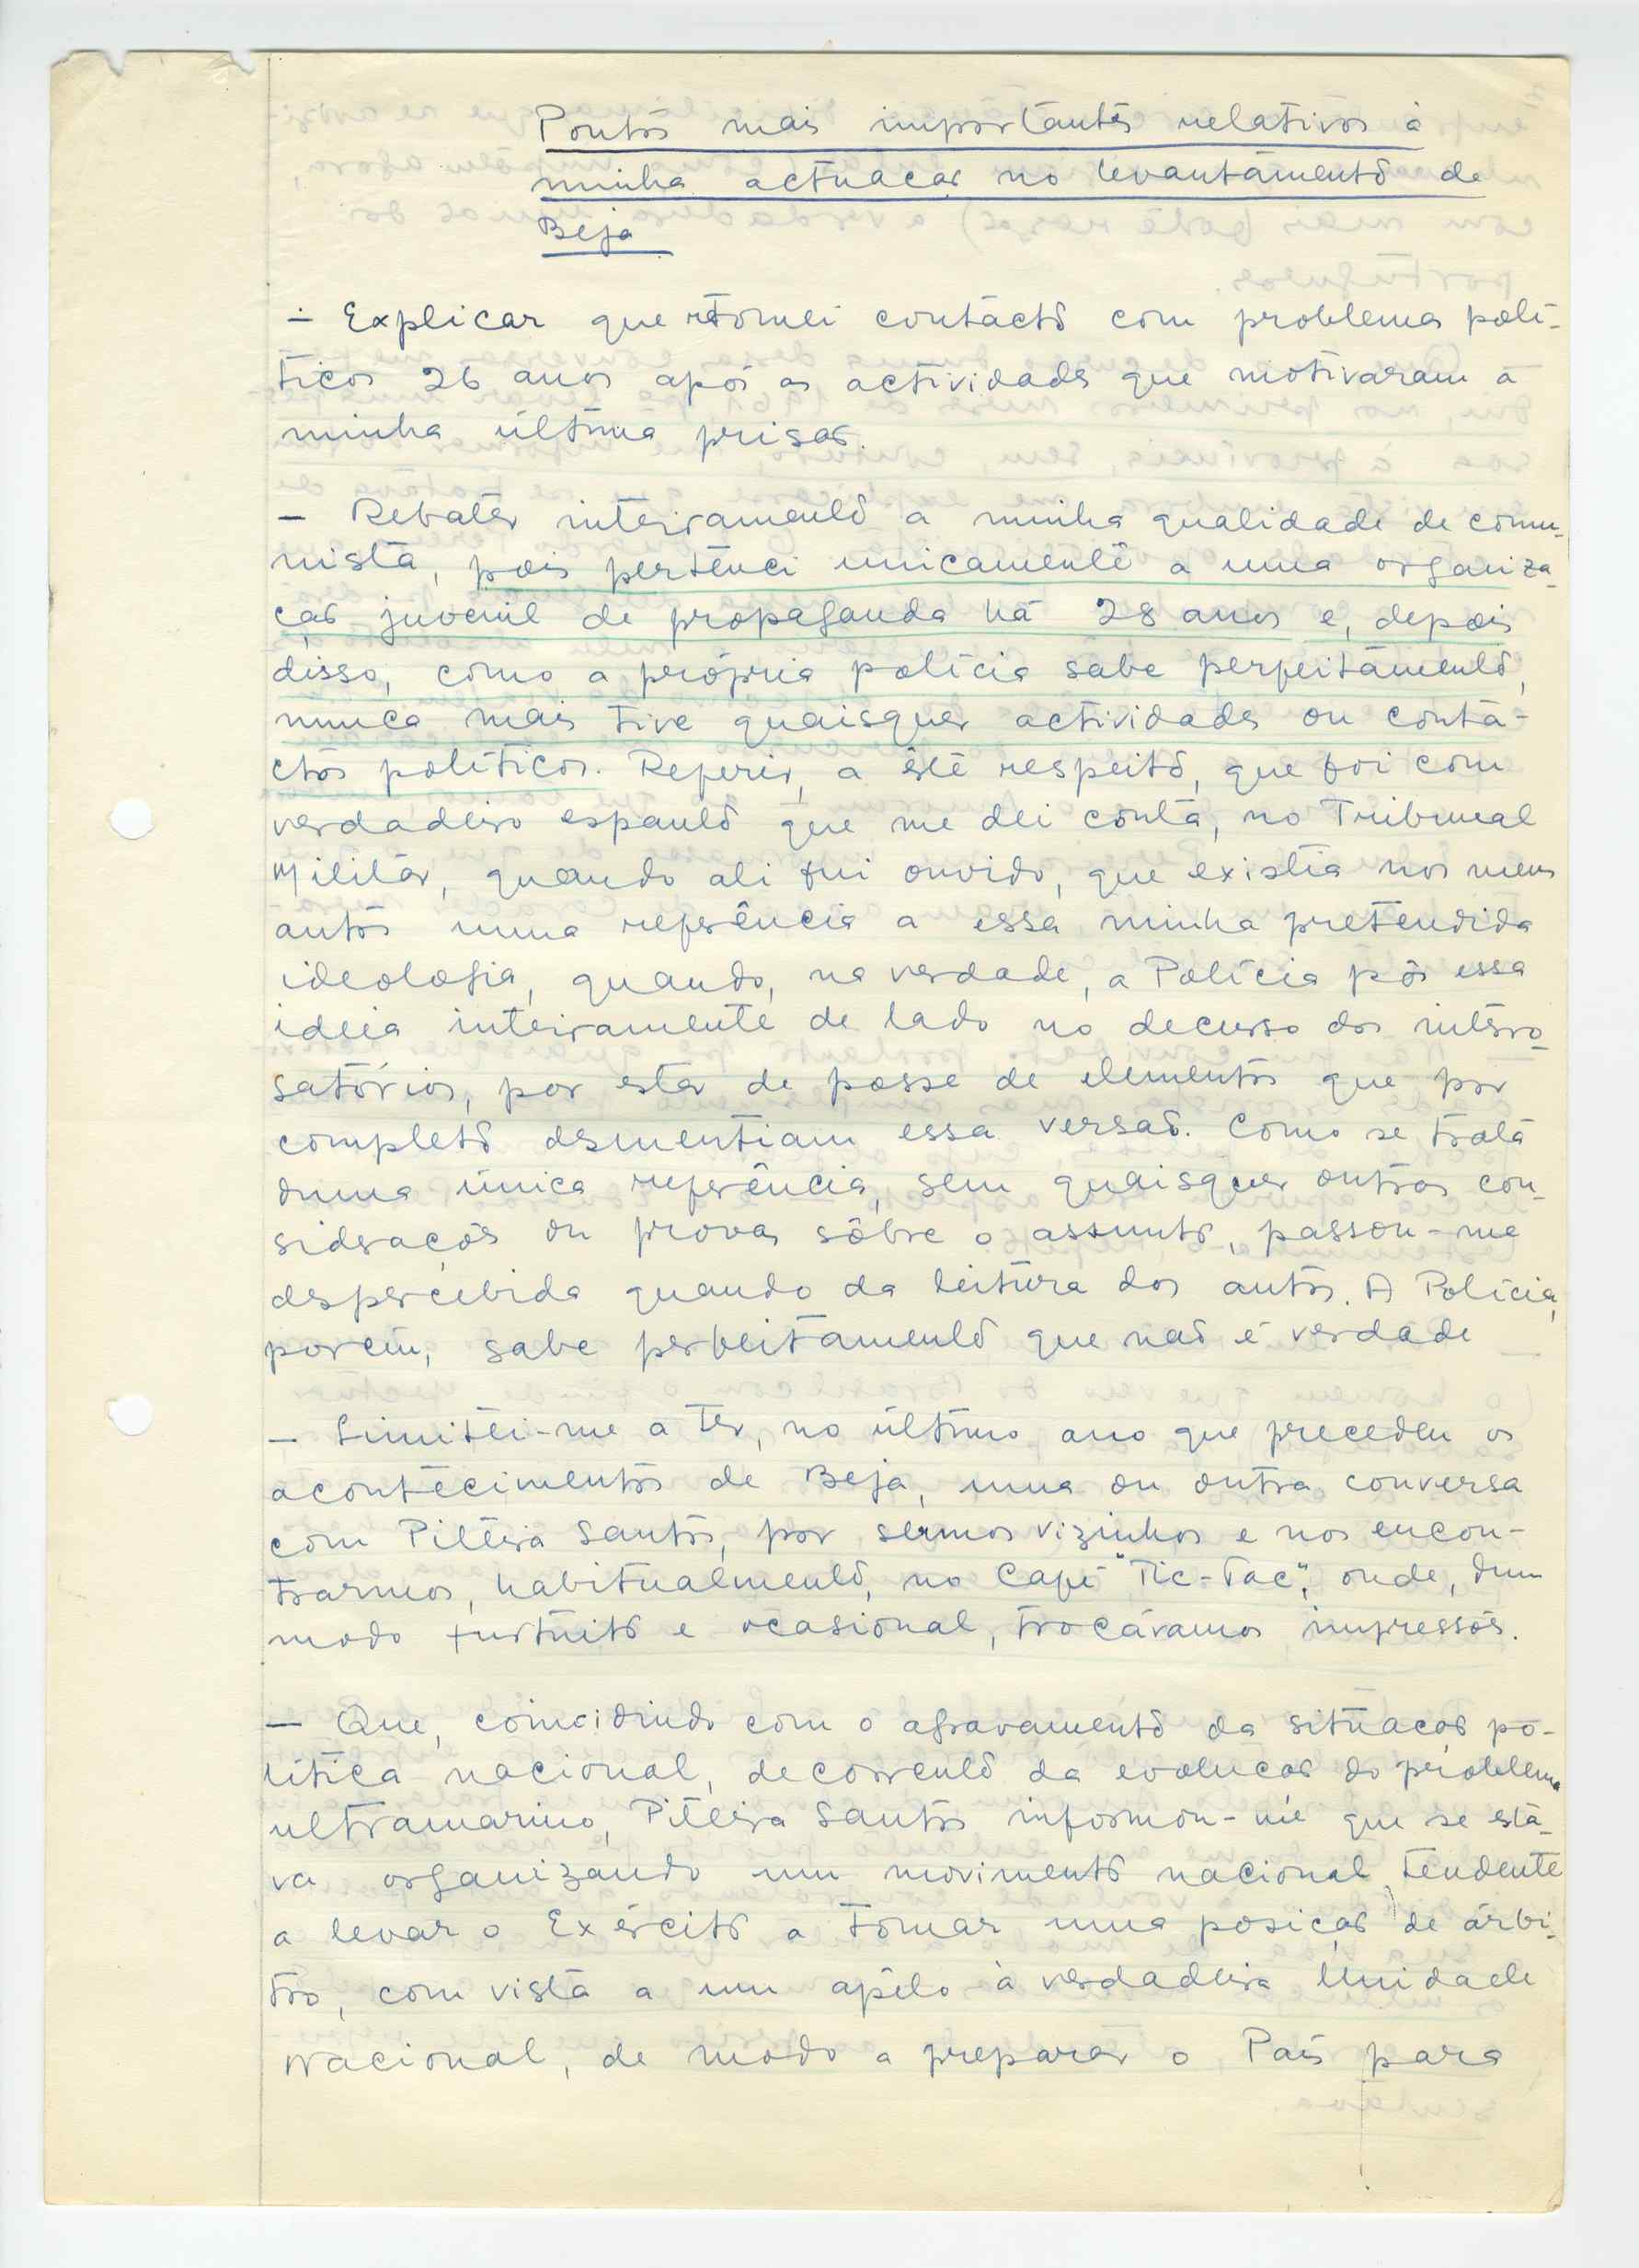 Pontos mais importantes relativos à
minha actuação no levantamento de
Beja
– Explicar que retomei contacto com problemas polí-
ticos 26 anos após as actividades que motivaram a
minha última prisão.
– Rebater inteiramente a minha qualidade de comu-
nista, pois pertenci unicamente a uma organiza-
ção juvenil de propaganda há 28 anos e, depois
disso, como a própria polícia sabe perfeitamente,
nunca mais tive quaisquer actividades ou contá-
ctos políticos. Referir, a êste respeito, que foi com
verdadeiro espanto que me dei conta, no Tribunal
Militar, quando ali fui ouvido, que existia nos meus
autos uma referência a essa minha pretendida
ideologia, quando, na verdade, a Polícia pôs essa
ideia inteiramente de lado no decurso dos interro-
gatórios, por estar de posse de elementos que por
completo desmentiam essa versão. Como se trata
duma única referência, sem quaisquer outras con-
siderações ou provas sôbre o assunto, passou-me
despercebida quando da leitura dos autos. A Polícia,
porém, sabe perfeitamente que não é verdade
– Limitei-me a ter, no último ano que precedeu os
acontecimentos de Beja, uma ou outra conversa
com Piteira Santos, por sermos vizinhos e nos encon-
trarmos, habitualmente, no Café "Tic-Tac", onde, dum
modo furtuito e ocasional, trocávamos impressões.
– Que, coincidindo com o agravamento da situação po-
lítica nacional, decorrente da evolução do problema
ultramarino, Piteira Santos informou-me que se esta-
va organizando um movimento nacional tendente
a levar o Exército a tomar uma posição de árbi-
tro, com vista a um apêlo à verdadeira Unidade
Nacional, de modo a preparar o País para